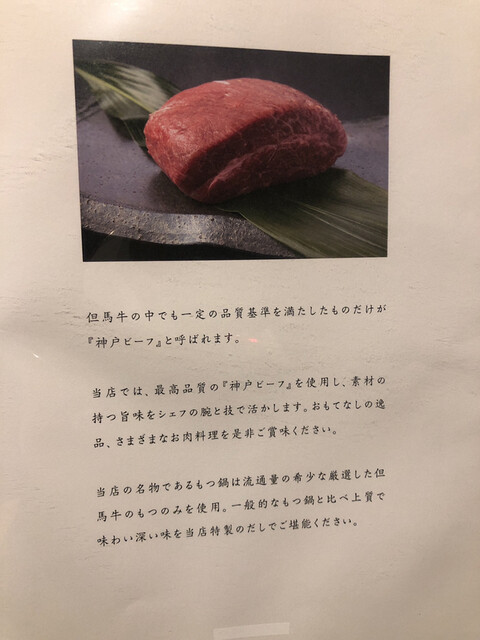 但馬牛の中でも一定の品質基準を満たしたものだけが
『神戸ビーフ』と呼ばれます。
当店では、最高品質の『神戸ビーフ』を使用し、素材の
持つ旨味をシェフの腕と技で活かします。おもてなしの逸
品、さまざまなお肉料理を是非ご賞味ください。
当店の名物であるもつ鍋は流通量の希少な厳選した但
馬牛のもつのみを使用。一般的なもつ鍋と比べ上質で
味わい深い味を当店特製のだしでご堪能ください。